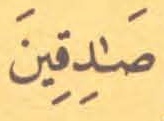 صَـٰدِقِينَ